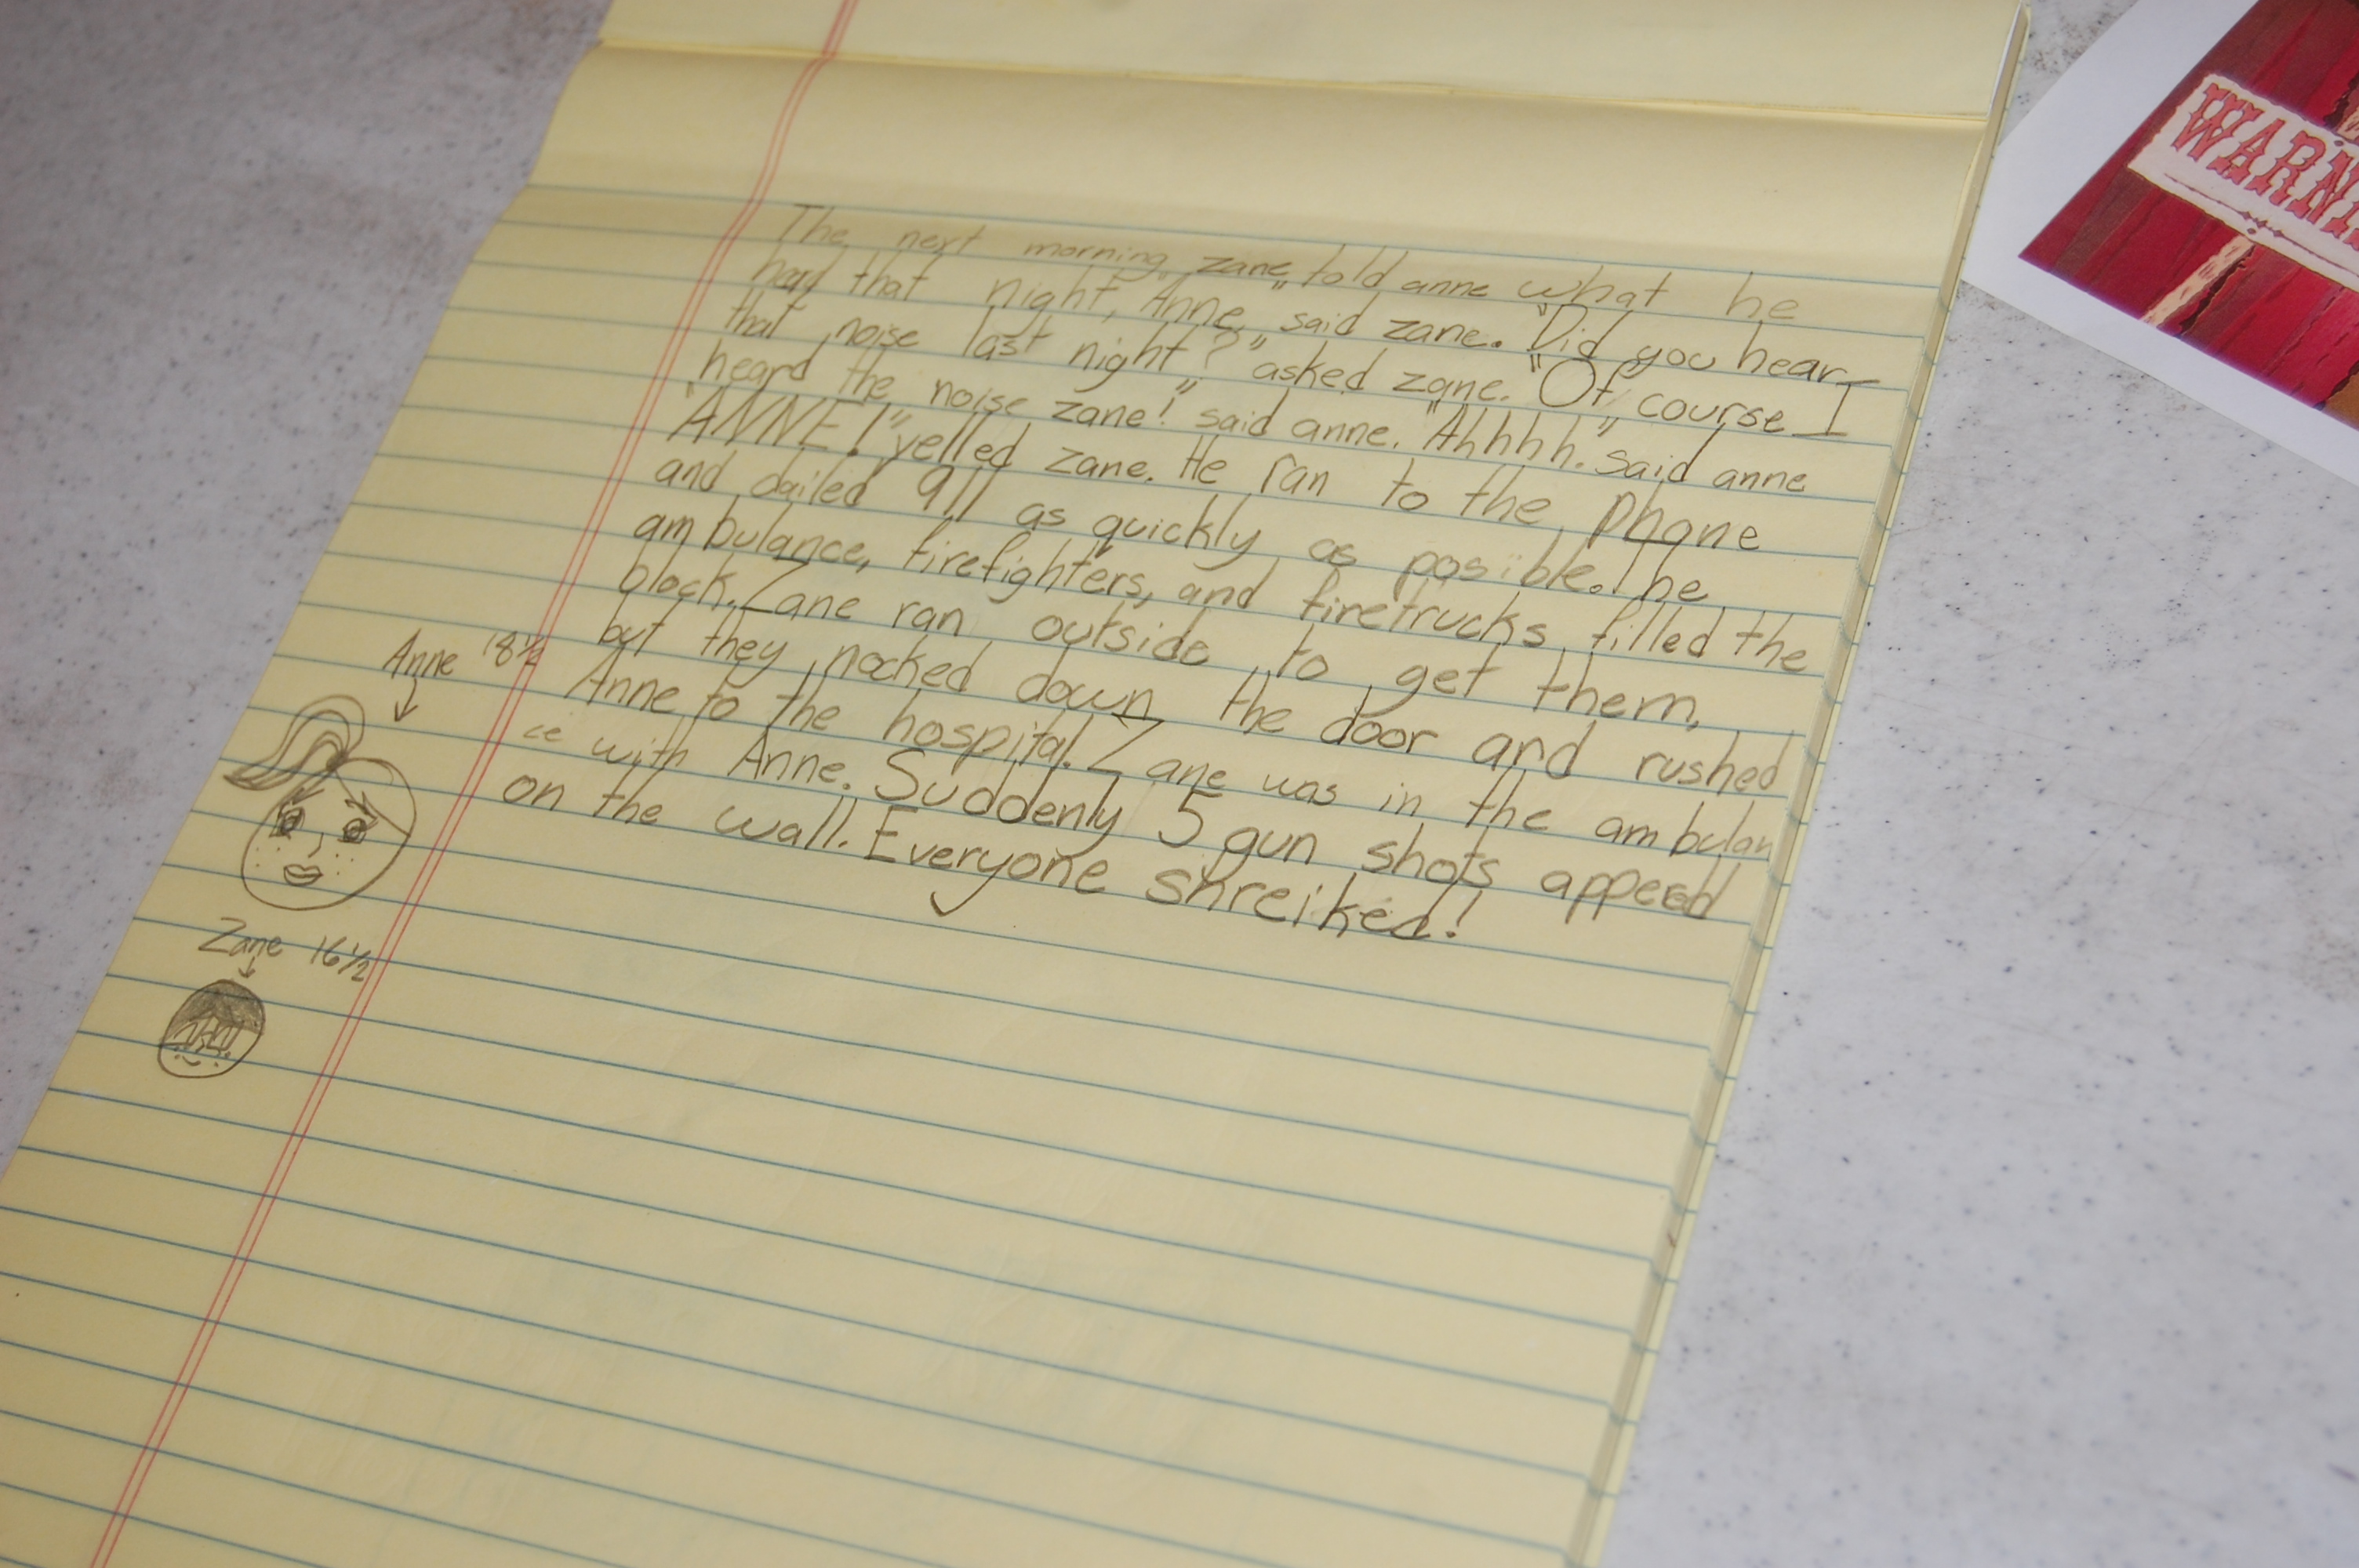 The next morning, zane told anne what he
heard that night, "Anne," said zane. "Did you hear
that noise last night?" asked zane. "Of course I
heard the noise zane!" said anne. "Ahhhh." said anne
"ANNE!" yelled zane. He ran to the phone
and dailed 911 as quickly as posible. The
ambulance, firefighters, and firetrucks filled the
block. Zane ran outside to get them,
but they nocked down the door and rushed
Anne to the hospital. Zane was in the ambulan
ce with Anne. Suddenly 5 gun shots appeerd
on the wall. Everyone shreiked!
Anne 18½
Zane 16½
WARNI